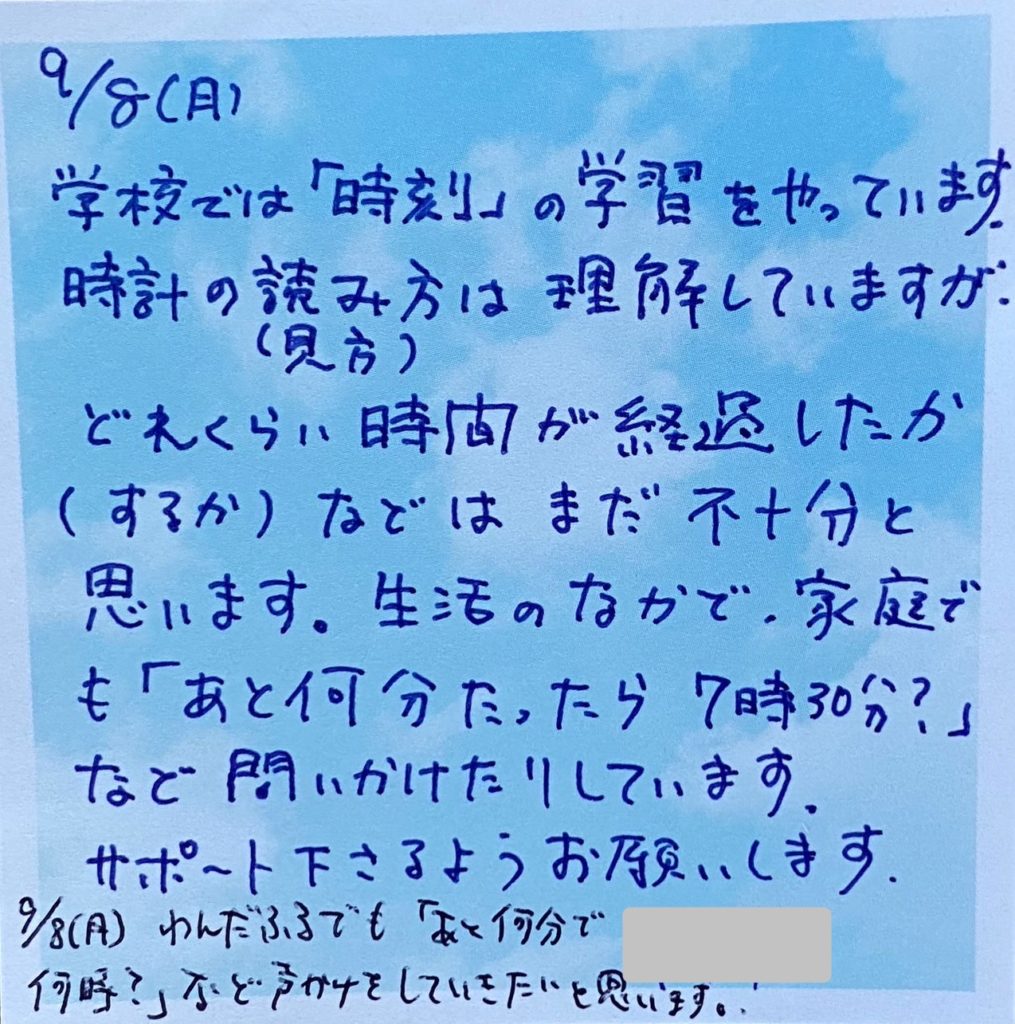 9/8(月)
学校では「時刻」の学習をやっています.
時計の読み方は理解していますが.
(見方)
どれくらい時間が経過したか
(するか)などはまだ不十分と
思います。生活のなかで、家庭で
も「あと何分たったら7時30分?」
など問いかけたりしています.
サポート下さるようお願いします.
9/8(月) わんだふるでも「あと何分で
何時?」など声かけをしていきたいと思います。